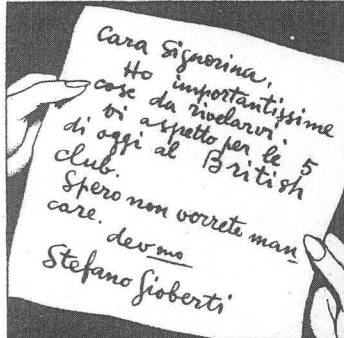 Cara Signorina,
Ho importantissime
cose da rivelarvi.
vi aspetto per le 5
di oggi al British
club.
Spero non vorrete man
care.
devmo
Stefano Gioberti